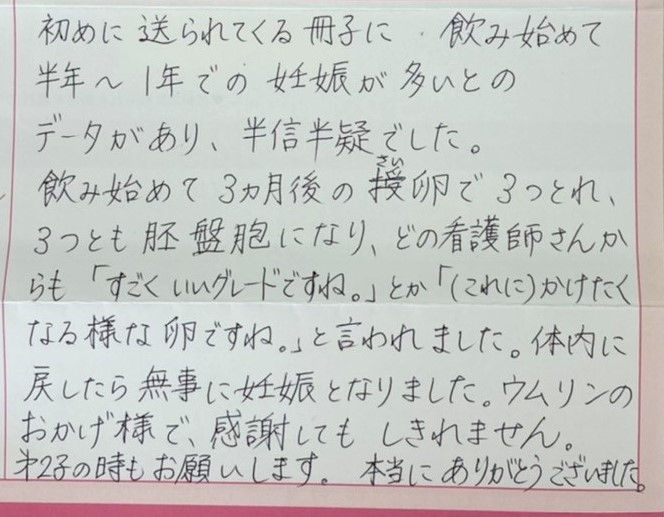 初めに 送られてくる 冊子に、飲み始めて
半年～1年での 妊娠が 多いとの
データがあり、半信半疑でした。
飲み始めて 3ヵ月後の 授(さい)卵で 3つとれ、
3つとも 胚盤胞になり、どの看護師さんか
らも「すごく いいグレードですね。」とか「(これに)かけたく
なる様な 卵ですね。」と言われました。体内に
戻したら 無事に妊娠となりました。ウムリンの
おかげ様で、感謝しても しきれません。
才2子の時もお願いします。 本当に ありがとうございました。